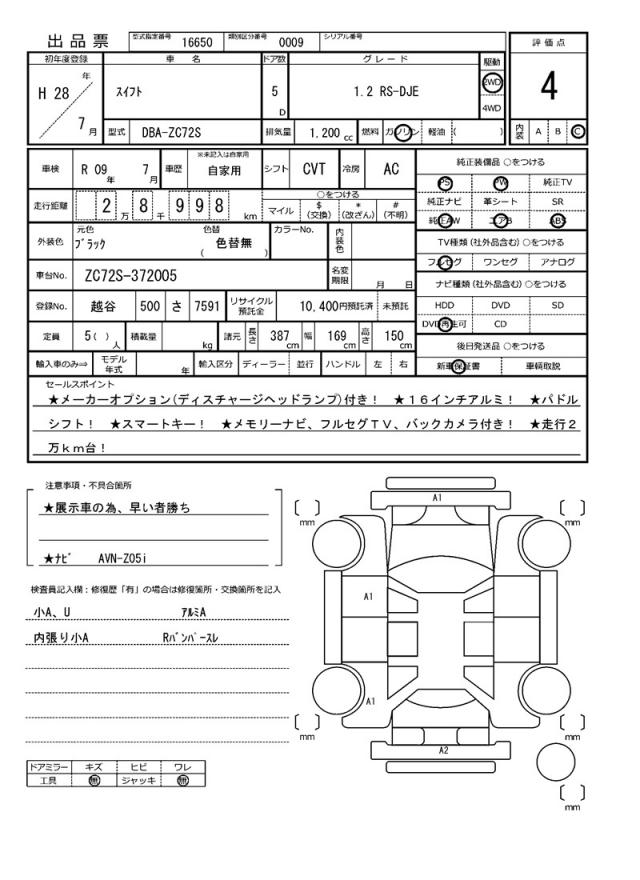 出品票 型式指定番号 16650 類別区分番号 0009 シリアル番号
評価点
4
内装 A B C
初年度登録 車名 ドア数 グレード 駆動
H 28 年 7 月 スイフト 5 D 1.2 RS-DJE 2WD 4WD
型式 DBA-ZC72S 排気量 1,200 cc 燃料 ガソリン 軽油 ( )
車検 R 09 年 7 月 車歴 ※未記入は自家用 自家用 シフト CVT 冷房 AC
走行距離 2 万 8 千 9 9 8 km ○をつける
マイル $ (交換) * (改ざん) # (不明)
外装色 元色 ブラック 色替 ( 色替無 ) カラーNo. 内装色
車台No. ZC72S-372005 名変期限 月 日
登録No. 越谷 500 さ 7591 リサイクル預託金 10,400円預託済 未預託
定員 5( ) 人 積載量 kg 諸元 長さ 387 cm 幅 169 cm 高さ 150 cm
輸入車のみ⇒ モデル年式 年 輸入区分 ディーラー 並行 ハンドル 左 右
純正装備品 ○をつける
PS PW 純正TV
純正ナビ 革シート SR
純正AW エアB ABS
TV種類 (社外品含む) ○をつける
フルセグ ワンセグ アナログ
ナビ種類 (社外品含む) ○をつける
HDD DVD SD
DVD再生可 CD
後日発送品 ○をつける
新車保証書 車輌取説
セールスポイント
★メーカーオプション(ディスチャージヘッドランプ)付き！ ★16インチアルミ！ ★パドル
シフト！ ★スマートキー！ ★メモリーナビ、フルセグTV、バックカメラ付き！ ★走行2
万km台！
注意事項・不具合箇所
★展示車の為、早い者勝ち
★ナビ AVN-Z05i
検査員記入欄：修復歴「有」の場合は修復箇所・交換箇所を記入
小A、U アルミA
内張り小A Rバンパースレ
ドアミラー キズ ヒビ ワレ
工具 無 ジャッキ 無
A1
mm
mm
A1
A1
mm
mm
A2
mm